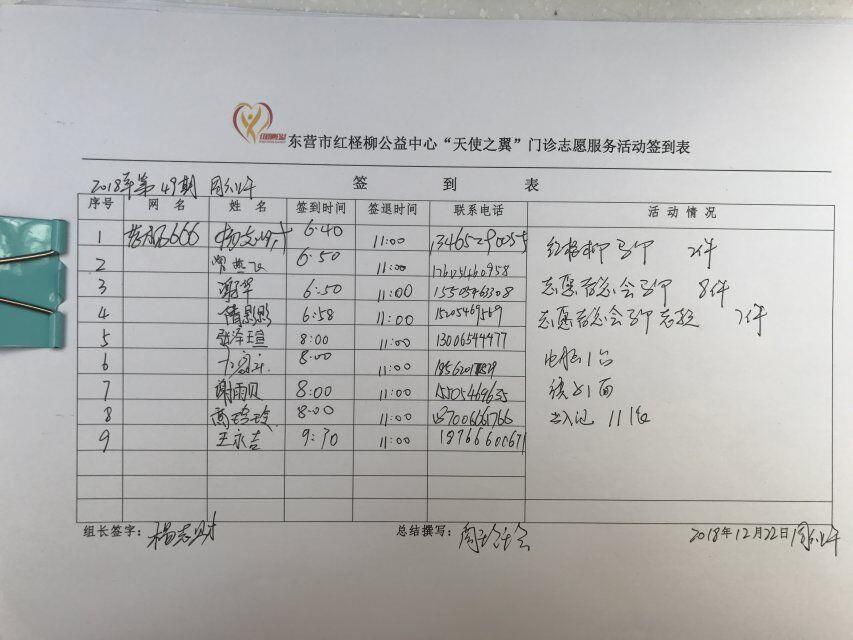 东营市红柽柳公益中心“天使之翼”门诊志愿服务活动签到表
2018年第49期 周六上午
签 到 表
序号 网 名 姓 名 签到时间 签退时间 联系电话 活 动 情 况
1 666 6:40 11:00 红柽柳马甲 2件
2 6:50 11:00 17605460958
3 6:50 11:00 15505463308 志愿者总会马甲 8件
4 6:58 11:00 志愿者总会马甲 1件
5 张泽瑄 8:00 11:00 13006544477
6 8:00 11:00 1台
7 谢雨贝 8:00 11:00 15505469635 1面
8 高玲玲 8:00 11:00 13700666766 登记 11
9 王永吉 9:30 11:00 18766600671
组长签字：杨志财 总结撰写： 2018年12月22日周六上午